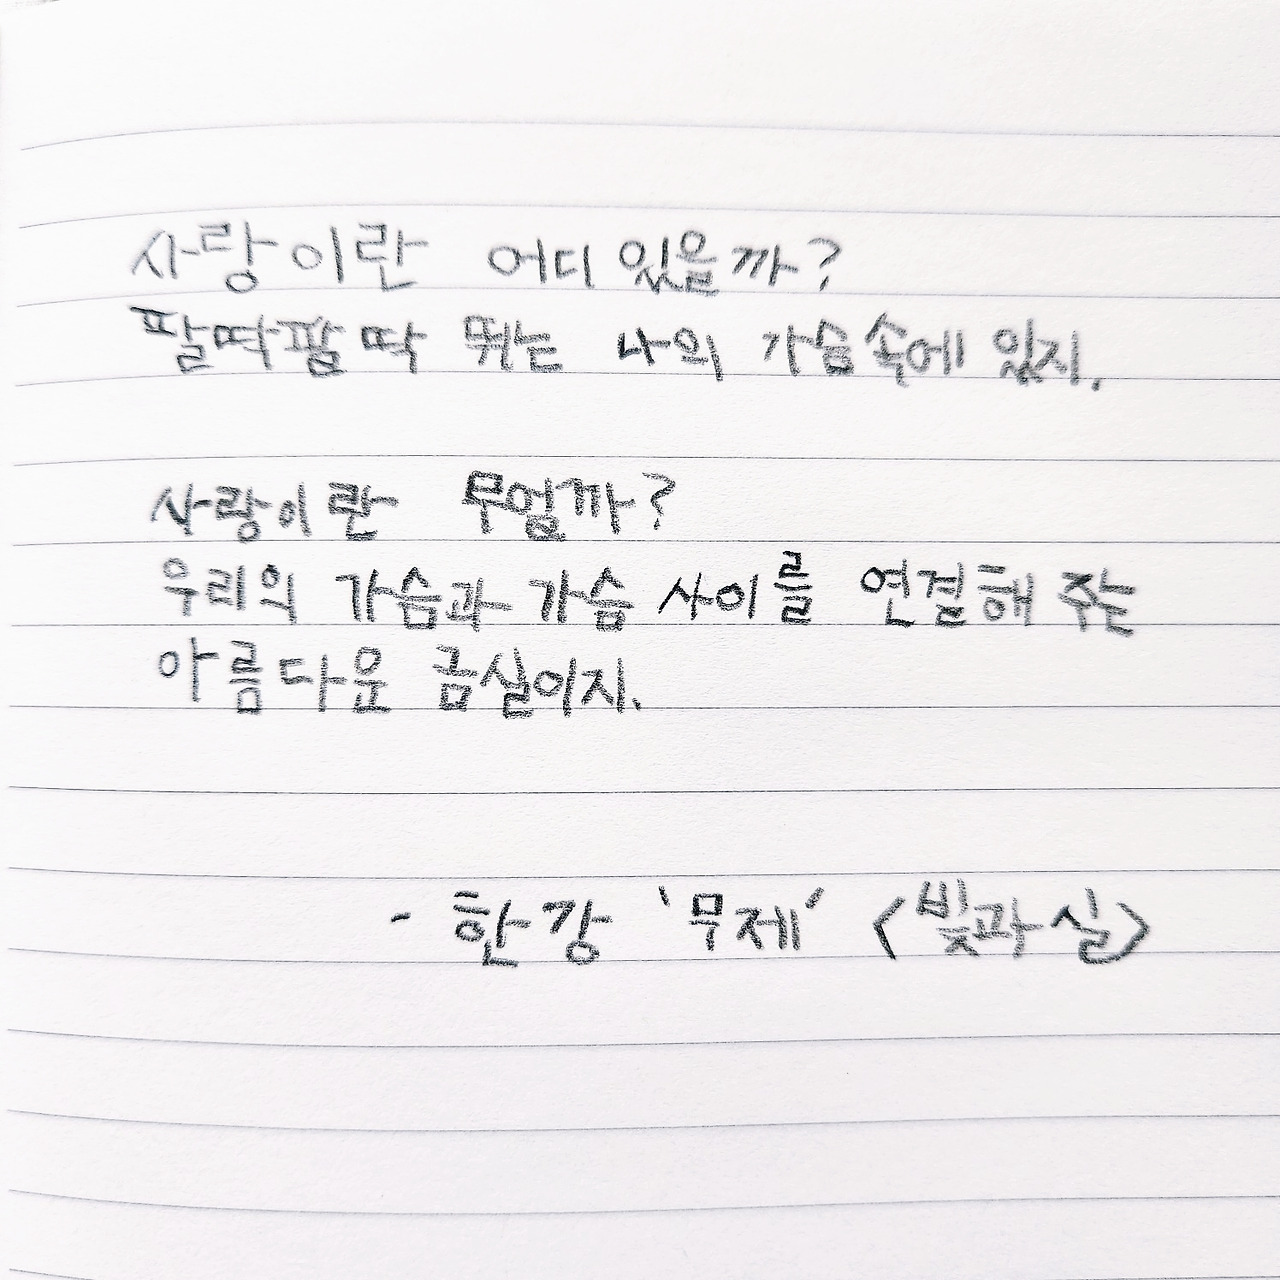 사랑이란 어디 있을까?
팔딱팔딱 뛰는 나의 가슴속에 있지.
사랑이란 무얼까?
우리의 가슴과 가슴 사이를 연결해 주는
아름다운 금실이지.
- 한강 '무제' <빛과 실>